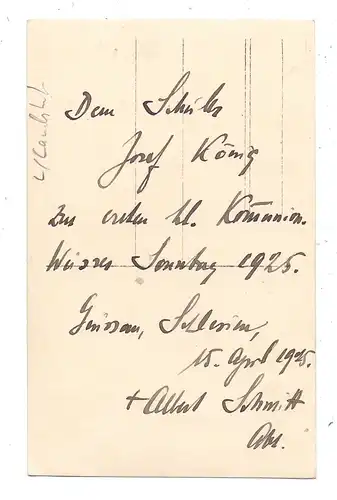 Dem Schüler
Josef König
zur ersten hl. Kommunion.
Weisser Sonntag 1925.
Grüssau, Schlesien,
15. April 1925.
+ Albert Schmitt
Abt.